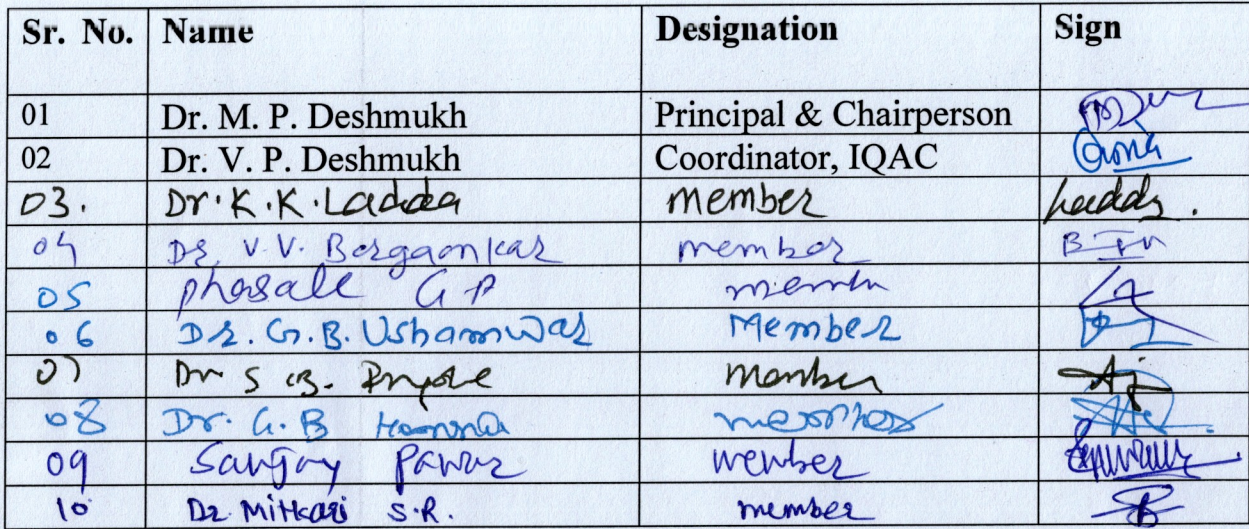 Sr. No. Name Designation Sign
01 Dr. M. P. Deshmukh Principal & Chairperson
02 Dr. V. P. Deshmukh Coordinator, IQAC
03. Dr. K. K. Ladda member
04 Dr. V. V. Bergaonkar member
05 phasale G P
06 Dr. G. B. Ushamwar Member
07 Dr S B. member
08 Dr. G. B member
09 Sanjay Pawar member
10 Dr. Mitkari S.R. member